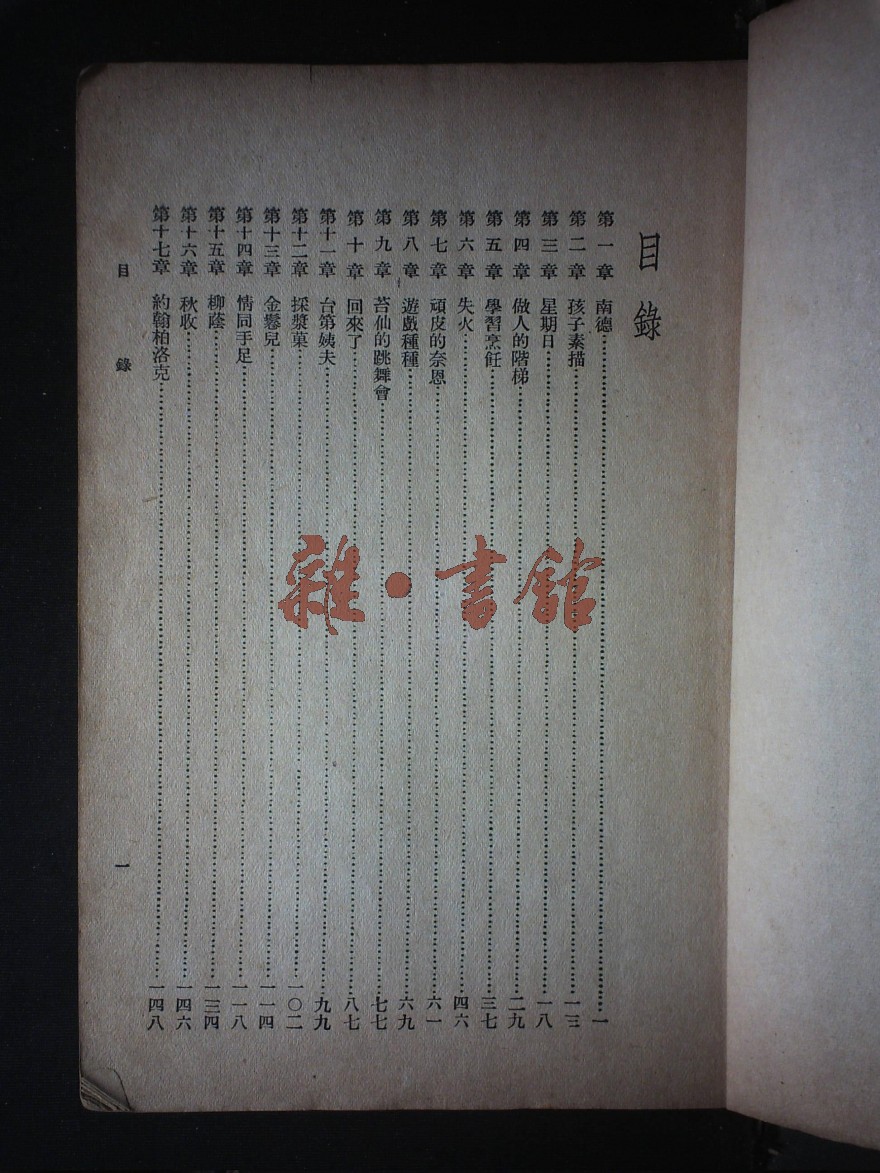 目錄
第一章 南德……一
第二章 孩子素描……一三
第三章 星期日……一八
第四章 做人的階梯……二九
第五章 學習烹飪……三七
第六章 失火……四六
第七章 頑皮的奈恩……六一
第八章 遊戲種種……六九
第九章 苔仙的跳舞會……七七
第十章 回來了……八七
第十一章 台第姨夫……九九
第十二章 採漿菓……一〇二
第十三章 金鬈兒……一一四
第十四章 情同手足……一一八
第十五章 柳蔭……一三四
第十六章 秋收……一四六
第十七章 約翰柏洛克……一四八
目錄 一
雜·書館